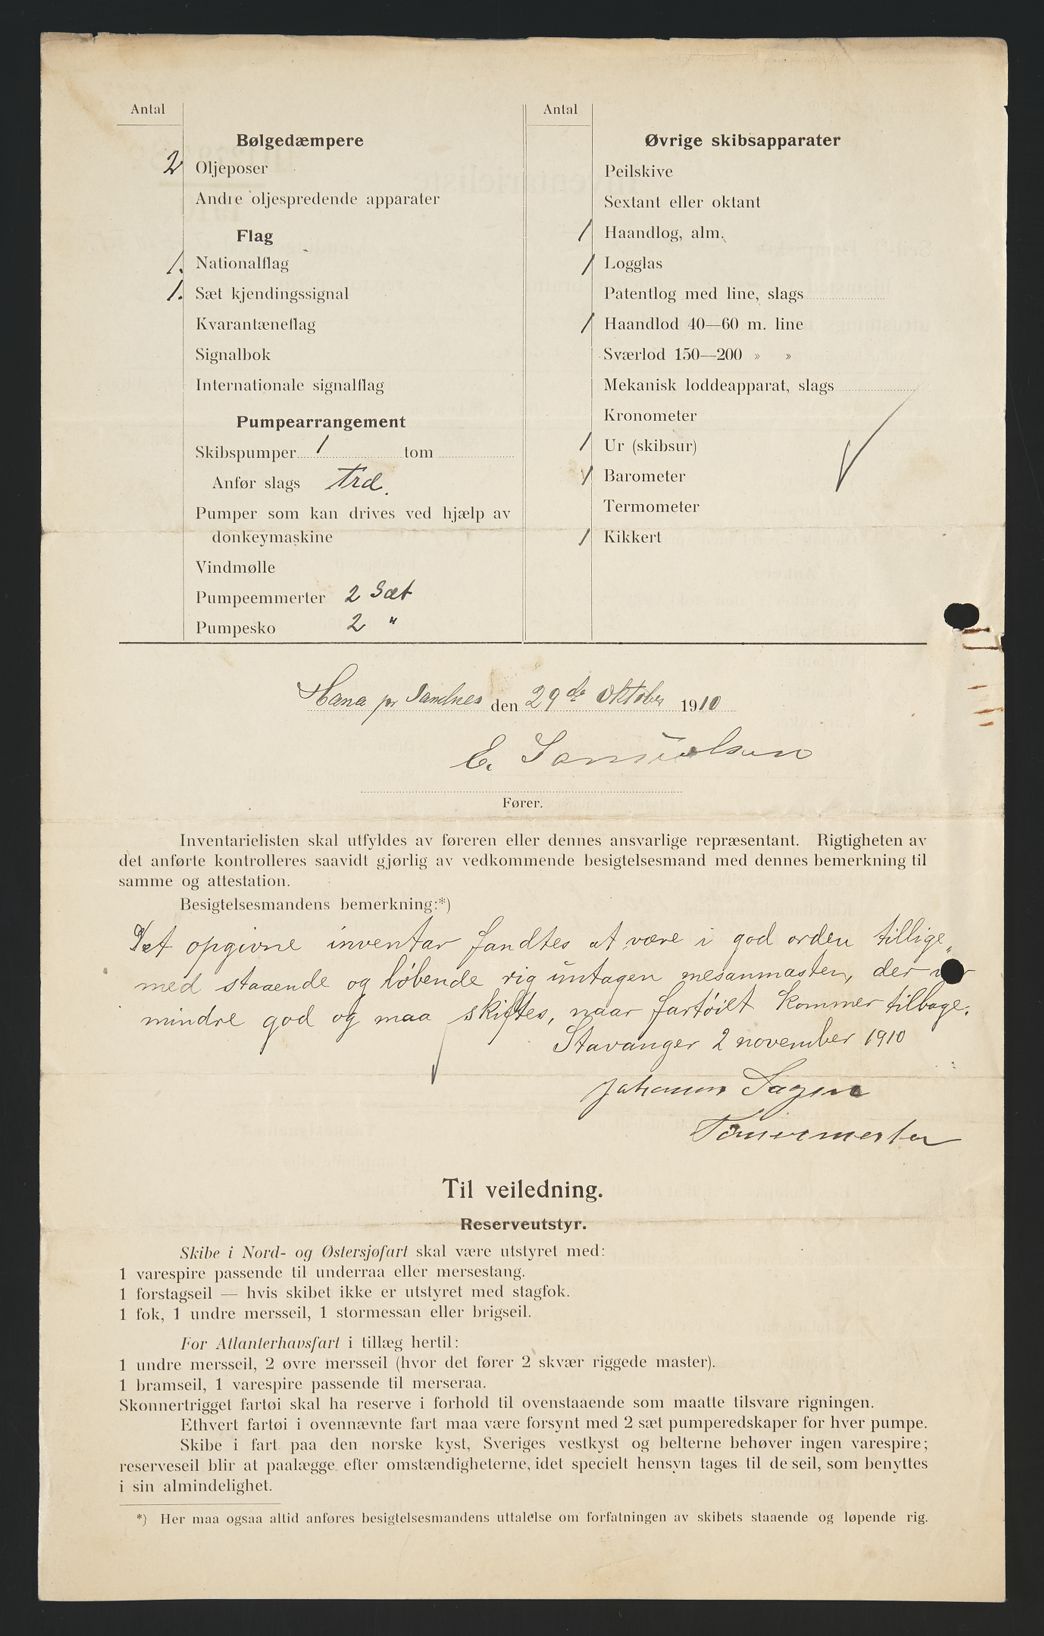 Antal
Bølgedæmpere
2 Oljeposer
Andre oljespredende apparater
Flag
1. Nationalflag
1. Sæt kjendingssignal
Kvarantæneflag
Signalbok
Internationale signalflag
Pumpearrangement
Skibspumper 1 tom
Anfør slags Træ.
Pumper som kan drives ved hjælp av
donkeymaskine
Vindmølle
Pumpeemmerter 2 Sæt
Pumpesko 2 "
Antal
Øvrige skibsapparater
Peilskive
Sextant eller oktant
1 Haandlog, alm.
1 Logglas
Patentlog med line, slags
1 Haandlod 40—60 m. line
Sværlod 150—200 » »
Mekanisk loddeapparat, slags
Kronometer
1 Ur (skibsur)
1 Barometer
Termometer
1 Kikkert
Hana pr Sandnes den 29de Oktober 1910
E. Samuelsen
Fører.
Inventarielisten skal utfyldes av føreren eller dennes ansvarlige repræsentant. Rigtigheten av
det anførte kontrolleres saavidt gjørlig av vedkommende besigtelsesmand med dennes bemerkning til
samme og attestation.
Besigtelsesmandens bemerkning:*)
Det opgivne inventar fandtes at være i god orden tillige
med staaende og løbende rig untagen mesanmasten, der var
mindre god og maa skiftes, naar fartøiet kommer tilbage.
Stavanger 2 november 1910
Johannes Sagen
Tømmermester
Til veiledning.
Reserveutstyr.
Skibe i Nord- og Østersjøfart skal være utstyret med:
1 varespire passende til underraa eller mersestang.
1 forstagseil — hvis skibet ikke er utstyret med stagfok.
1 fok, 1 undre mersseil, 1 stormessan eller brigseil.
For Atlanterhavsfart i tillæg hertil:
1 undre mersseil, 2 øvre mersseil (hvor det fører 2 skvær riggede master).
1 bramseil, 1 varespire passende til merseraa.
Skonnertrigget fartøi skal ha reserve i forhold til ovenstaaende som maatte tilsvare rigningen.
Ethvert fartøi i ovennævnte fart maa være forsynt med 2 sæt pumperedskaper for hver pumpe.
Skibe i fart paa den norske kyst, Sveriges vestkyst og belterne behøver ingen varespire;
reserveseil blir at paalægge efter omstændigheterne, idet specielt hensyn tages til de seil, som benyttes
i sin almindelighet.
*) Her maa ogsaa altid anføres besigtelsesmandens uttalelse om forfatningen av skibets staaende og løpende rig.